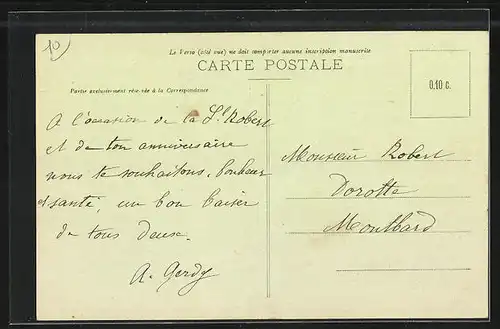 10
Le Verso (côté vue) ne doit comporter aucune inscription manuscrite
CARTE POSTALE
Partie exclusivement réservée à la Correspondance
0.10 c.
A l'occasion de la St Robert
et de ton anniversaire
nous te souhaitons, bonheur
et santé, un bon baiser
de tous deux.
A. Gerdy
Monsieur Robert
Dorotte
Montbard